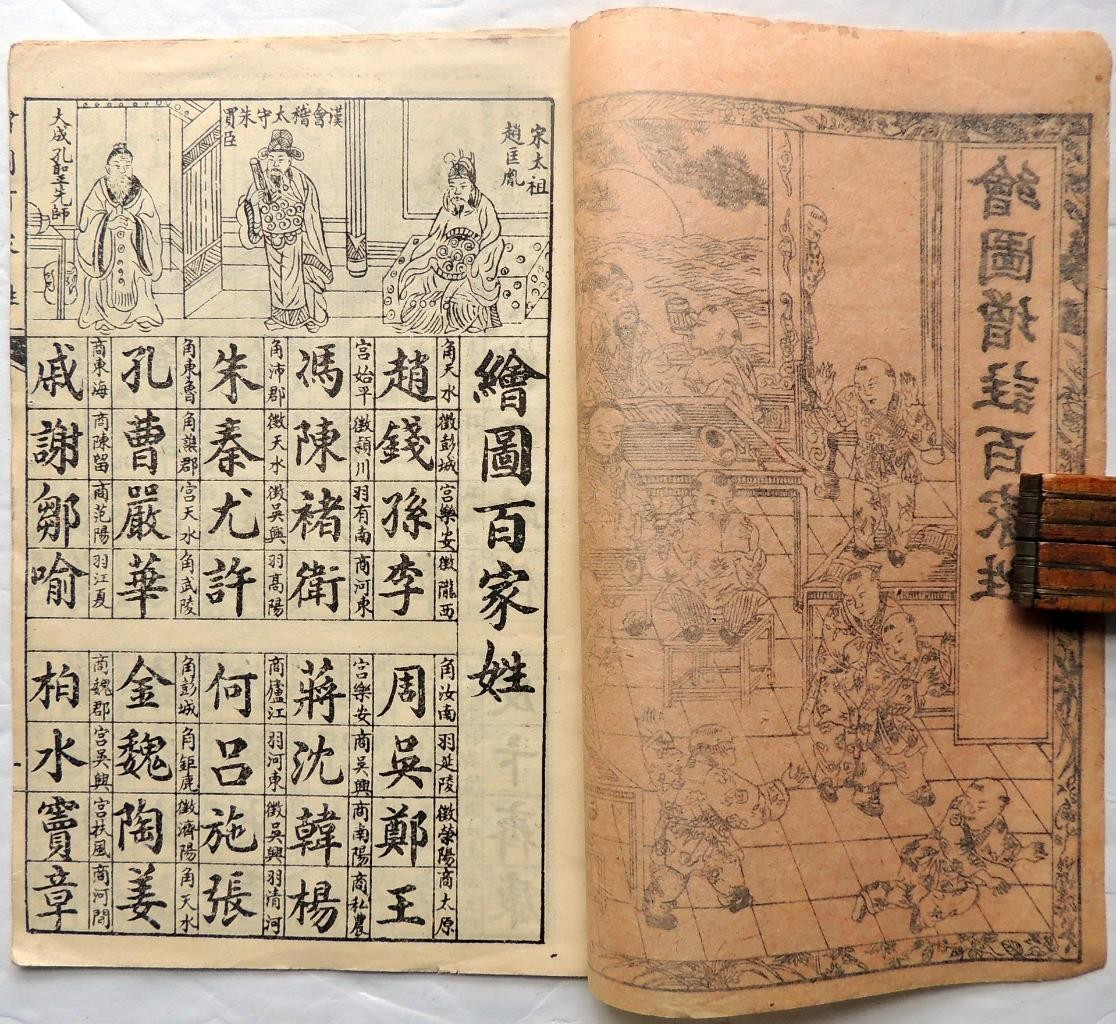 繪圖增註百家姓
宋太祖
趙匡胤
漢會稽太守朱買臣
大成孔聖先師
繪圖百家姓
角天水 徵彭城 宮樂安 徵隴西
趙錢孫李
宮始平 徵潁川 羽有南 商河東
馮陳褚衛
角沛郡 徵天水 徵吳興 羽高陽
朱秦尤許
角東魯 角譙郡 宮天水 角武陵
孔曹嚴華
商東海 商陳留 商范陽 羽江夏
戚謝鄒喻
角汝南 羽延陵 徵榮陽 商太原
周吳鄭王
宮樂安 商吳興 商南陽 商私農
蔣沈韓楊
商廬江 羽河東 徵吳興 羽清河
何呂施張
角彭城 角鉅鹿 徵濟陽 角天水
金魏陶姜
商魏郡 宮吳興 宮扶風 商河間
柏水竇章